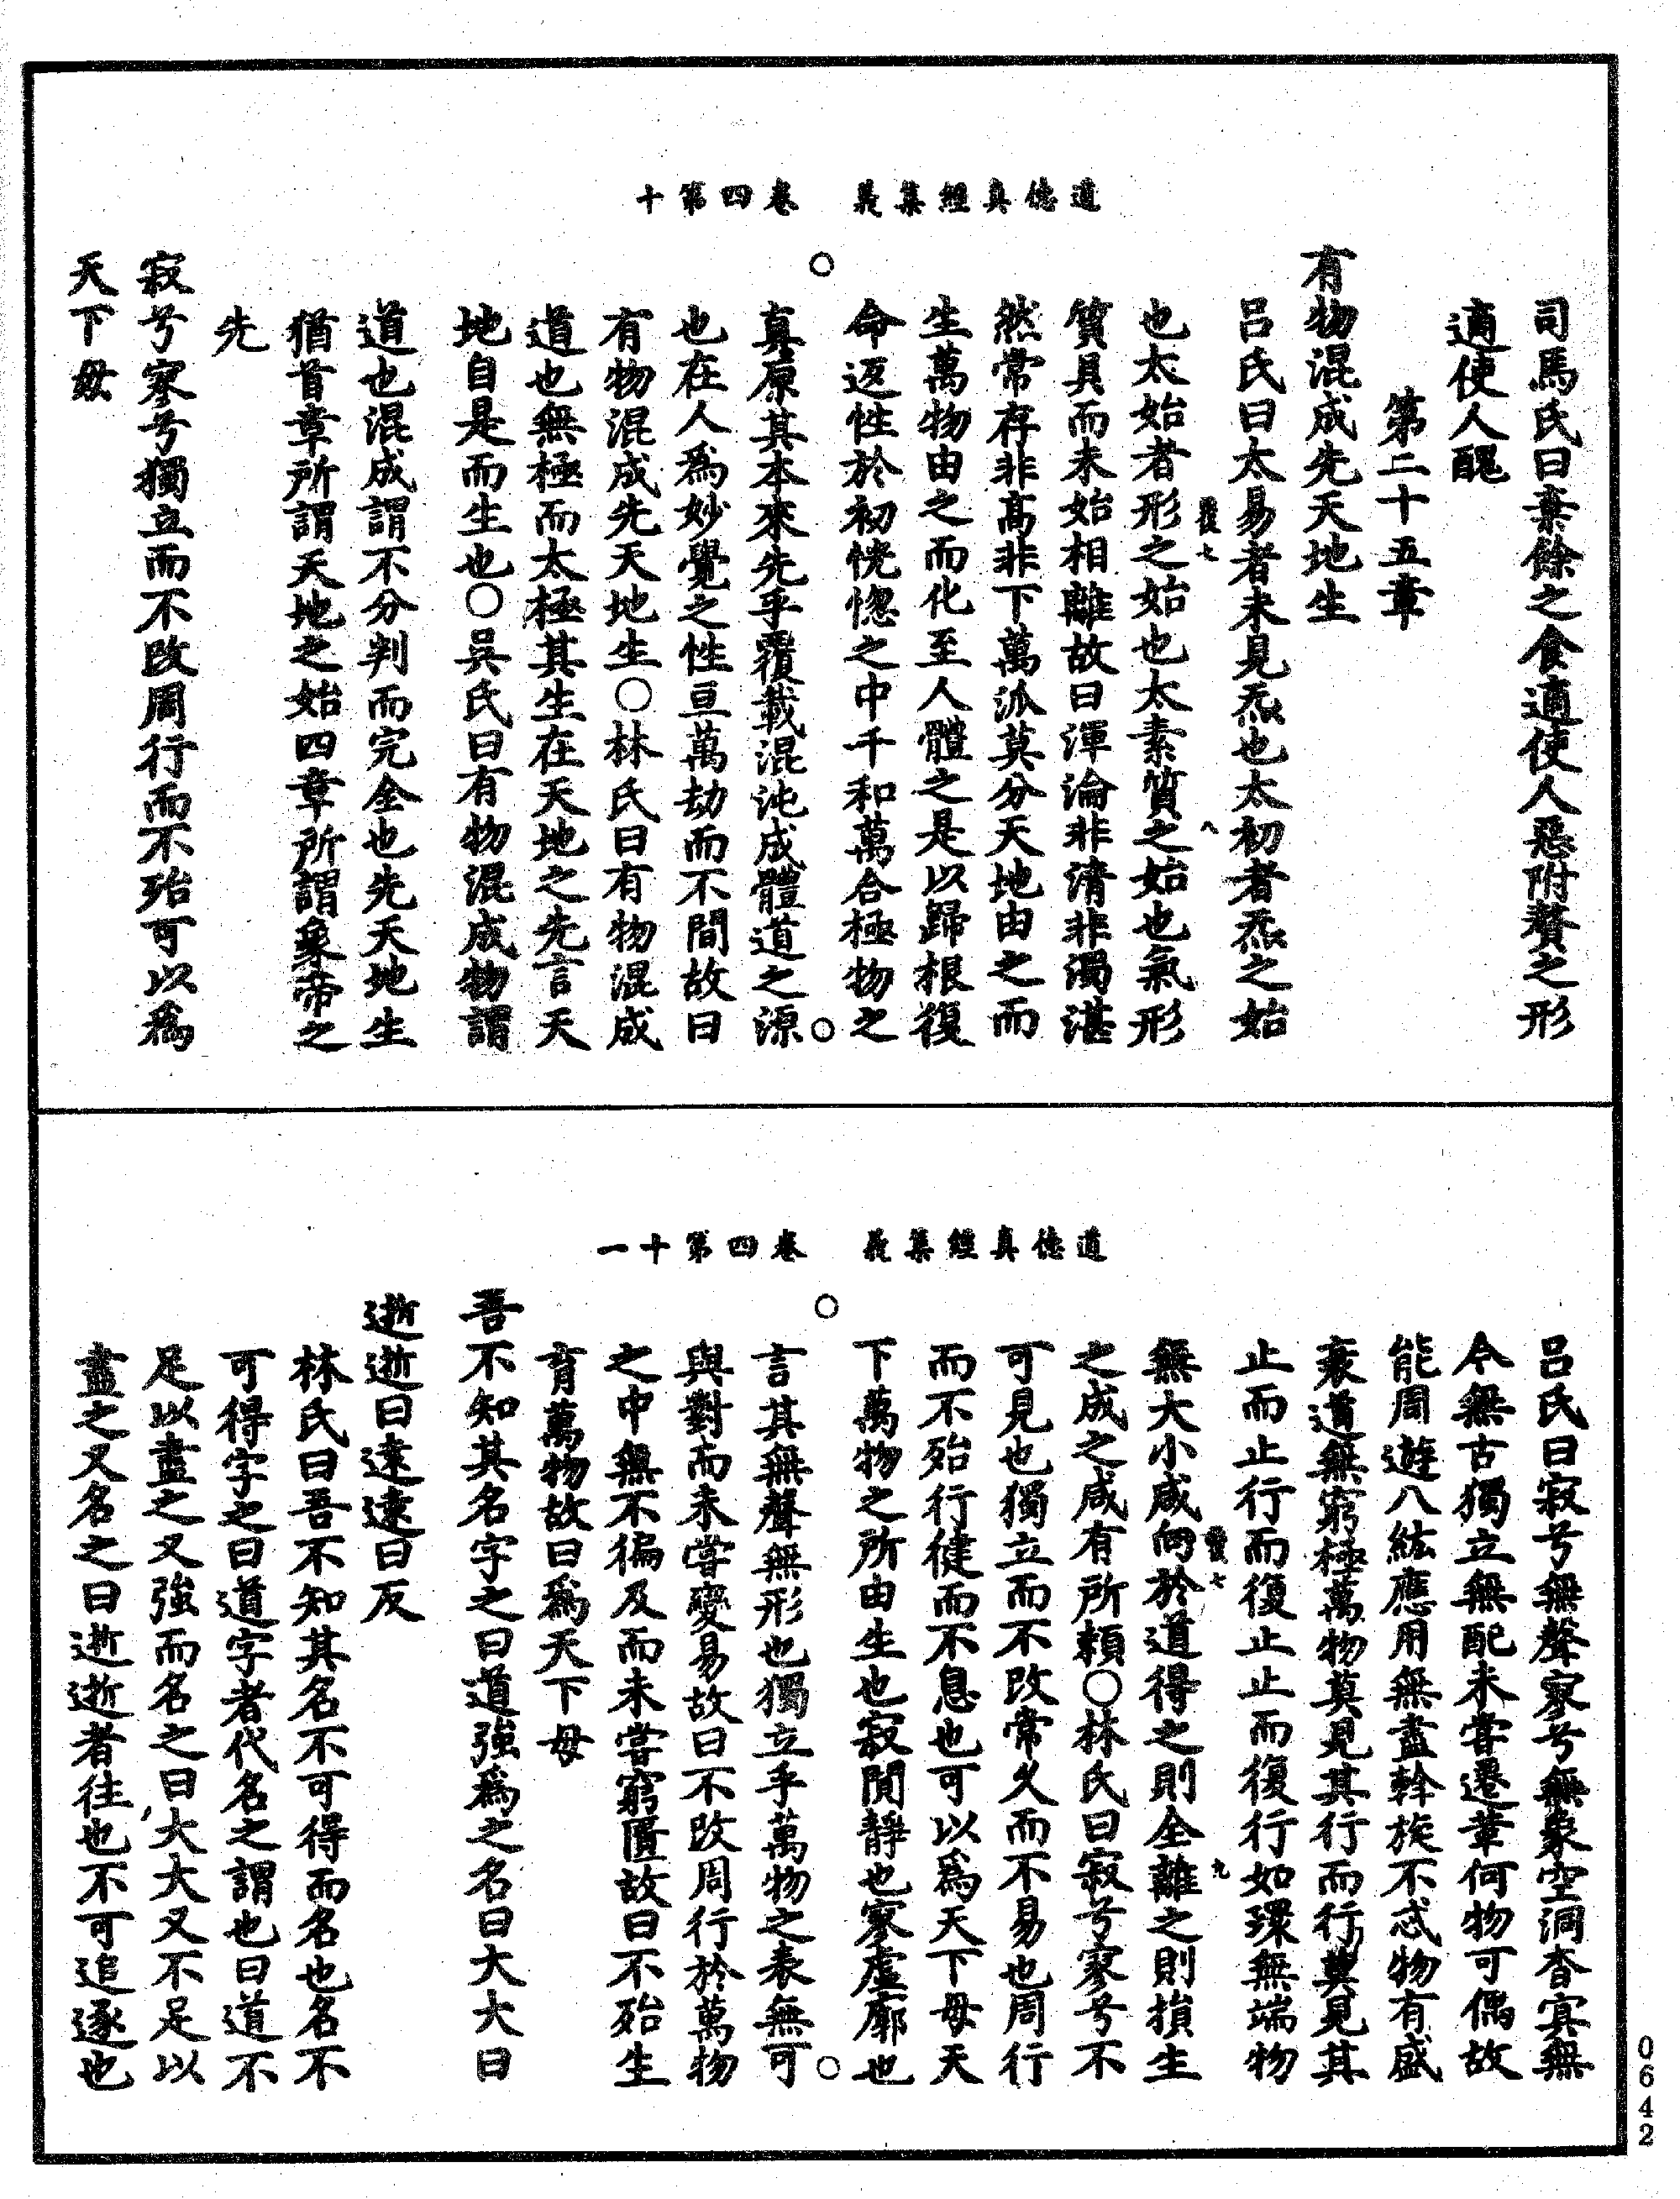 道德真經集義　卷四第十
司馬氏曰棄餘之食適使人惡附贅之形
適使人醜
第二十五章
有物混成先天地生
呂氏曰太易者未見炁也太初者炁之始
也太始者形之始也太素質之始也氣形
質具而未始相離故曰渾淪非清非濁湛
然常存非高非下萬派莫分天地由之而
生萬物由之而化至人體之是以歸根復
命返性於初恍惚之中千和萬合極物之
真原其本來先乎覆載混沌成體道之源
也在人爲妙覺之性亘萬劫而不間故曰
有物混成先天地生○林氏曰有物混成
道也無極而太極其生在天地之先言天
地自是而生也○吳氏曰有物混成物謂
道也混成謂不分判而完全也先天地生
猶首章所謂天地之始四章所謂象帝之
先
寂兮寥兮獨立而不改周行而不殆可以爲
天下母
道德真經集義　卷四第十一
呂氏曰寂兮無聲寥兮無象空洞杳冥無
今無古獨立無配未嘗遷革何物可偶故
能周遊八紘應用無盡斡旋不忒物有盛
衰道無窮極萬物莫見其行而行莫見其
止而止行而復止止而復行如環無端物
無大小咸向於道得之則全離之則損生
之成之咸有所賴○林氏曰寂兮寥兮不
可見也獨立而不改常久而不易也周行
而不殆行健而不息也可以爲天下母天
下萬物之所由生也寂閴靜也寥虛廓也
言其無聲無形也獨立乎萬物之表無可
與對而未嘗變易故曰不改周行於萬物
之中無不徧及而未嘗窮匱故曰不殆生
育萬物故曰爲天下母
吾不知其名字之曰道強爲之名曰大大曰
逝逝曰遠遠曰反
林氏曰吾不知其名不可得而名也名不
可得字之曰道字者代名之謂也曰道不
足以盡之又強而名之曰大大又不足以
盡之又名之曰逝逝者往也不可追逐也
0642